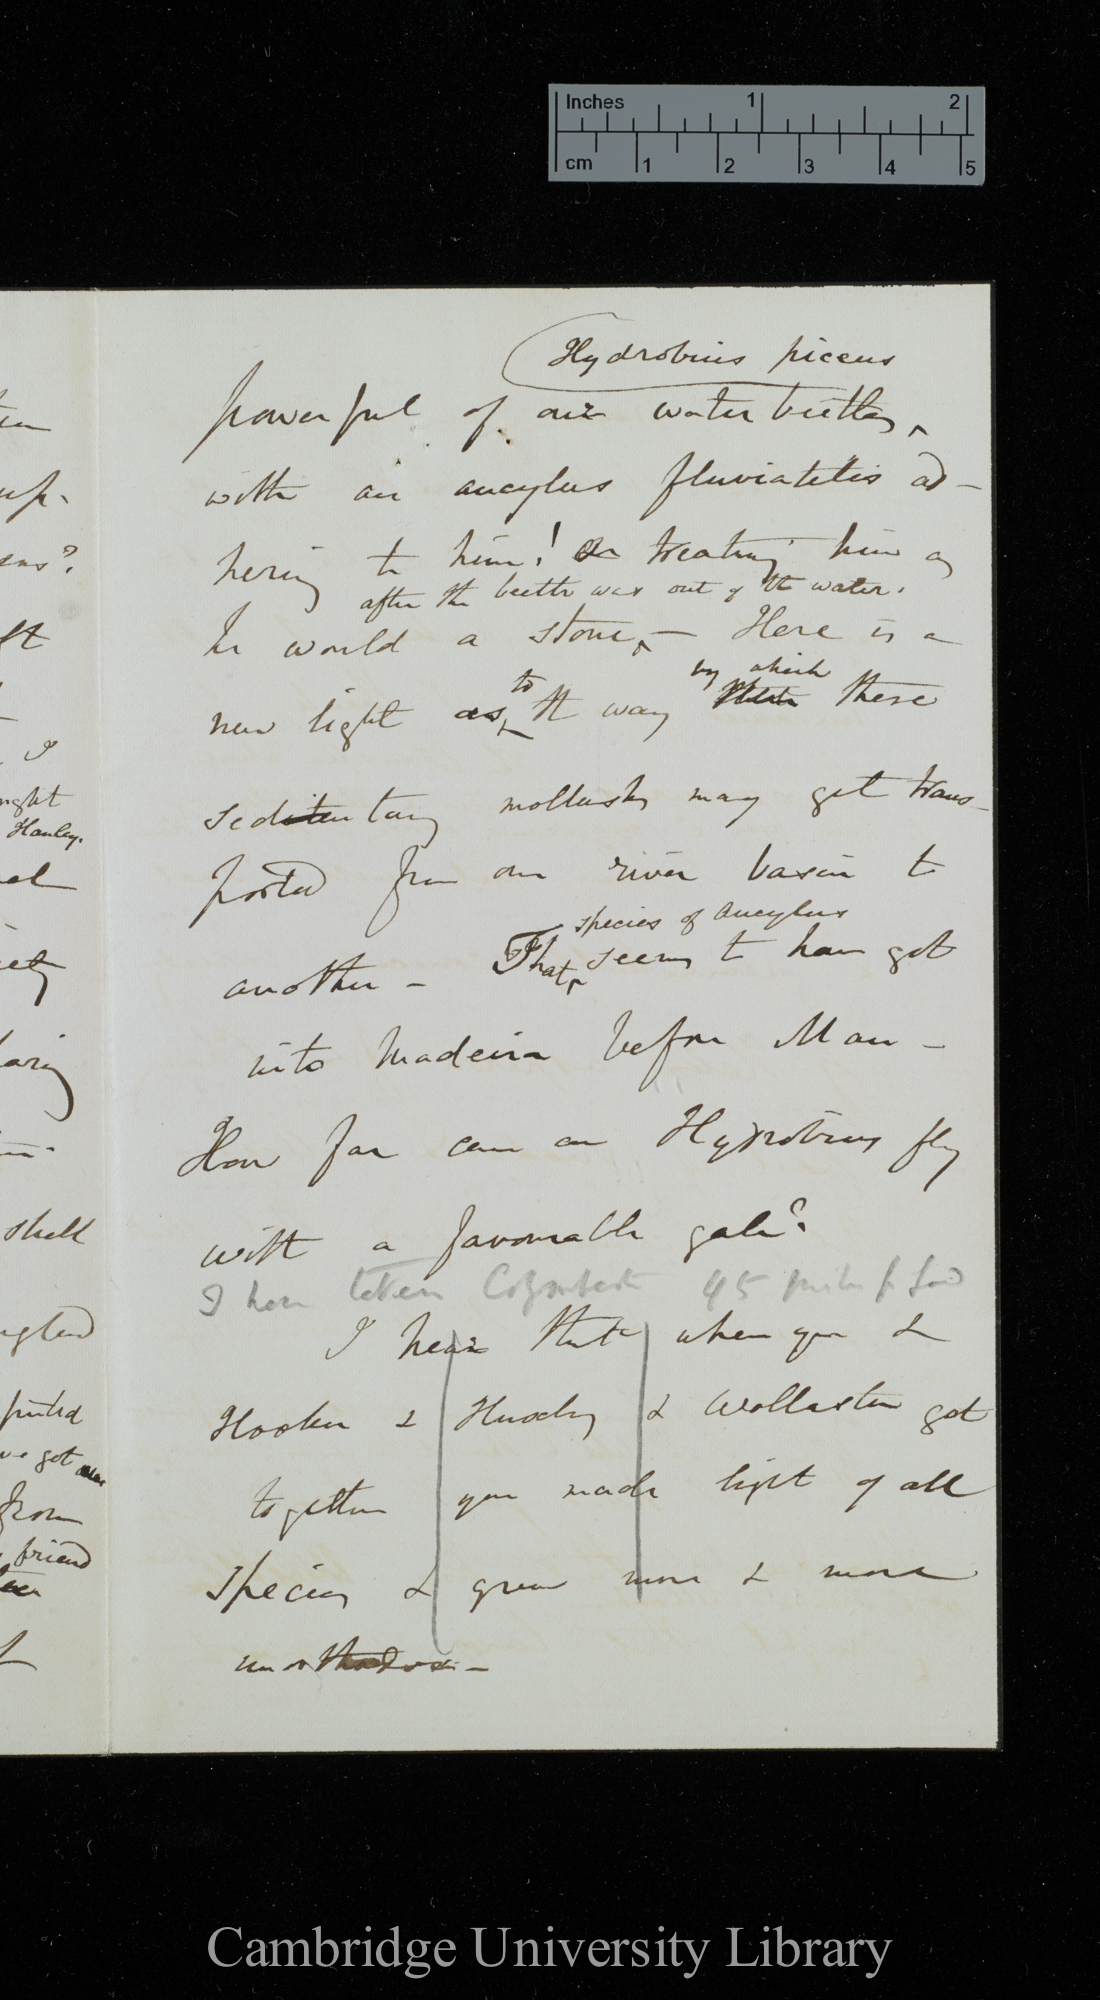 Inches 1 2
cm 1 2 3 4 5
Hydrobius piceus
powerful of our water beetles,
with an ancylus fluviatilis ad-
hering to him! & treating him as
after the beetle was out of the water.
he would a stone, — Here is a
by which
to
new light as the way these
sedentary mollusks may get trans-
ported from one river basin to
species of Ancylus
another — That seems to have got
into Madeira before Man —
How far can an Hydrobius fly
with a favourable gale?
I have taken Colymbetes 45 miles fr land
I hear that when you &
Hooker & Huxley & Wollaston got
together you made light of all
Species & grew more & more
unorthodox. —
ght
Hanley.
shell
printed
got
from
friend
Cambridge University Library